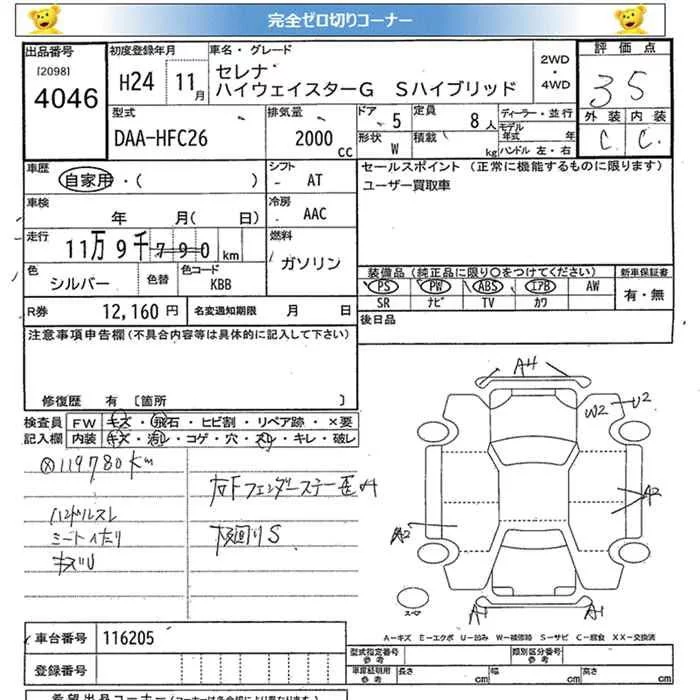 完全ゼロ切りコーナー
出品番号 初度登録年月 車名・グレード 2WD・4WD 評価点
[2098] 4046 H24 11月 セレナ
ハイウェイスターG Sハイブリッド
35
型式 排気量 ドア 5 定員 8人 ディーラー・並行 外装 内装
DAA-HFC26 2000cc 形状 W 積載 kg モデル年式 年 C. C.
ハンドル 左・右
車歴 自家用・( ) シフト - AT セールスポイント (正常に機能するものに限ります)
車検 年 月( 日) 冷房 - AAC ユーザー買取車
走行 11万9千790km 燃料 ガソリン
色 シルバー 色替 色コード KBB 装備品(純正品に限り○をつけてください) 新車保証書
PS PW ABS エアB AW 有・無
SR ナビ TV カワ
R券 12,160円 名変通知期限 月 日 後日品
注意事項申告欄(不具合内容等は具体的に記入して下さい)
修復歴 有 [箇所 ]
検査員 FW キズ・飛石・ヒビ割・リペア跡・×要
記入欄 内装 キズ・汚レ・コゲ・穴・スレ・キレ・破レ
119780km
ハンドルスレ
キズU
S
A4
W2 U2
A2
A2
A1 A1
スペア
A-キズ E-エクボ U-凹み W-補修跡 S-サビ C-腐食 XX-交換済
車台番号 116205 型式指定番号 参考 類別区分番号 参考
登録番号 車庫証明用 参考 長さ cm 幅 cm 高さ cm
希望出品コーナー